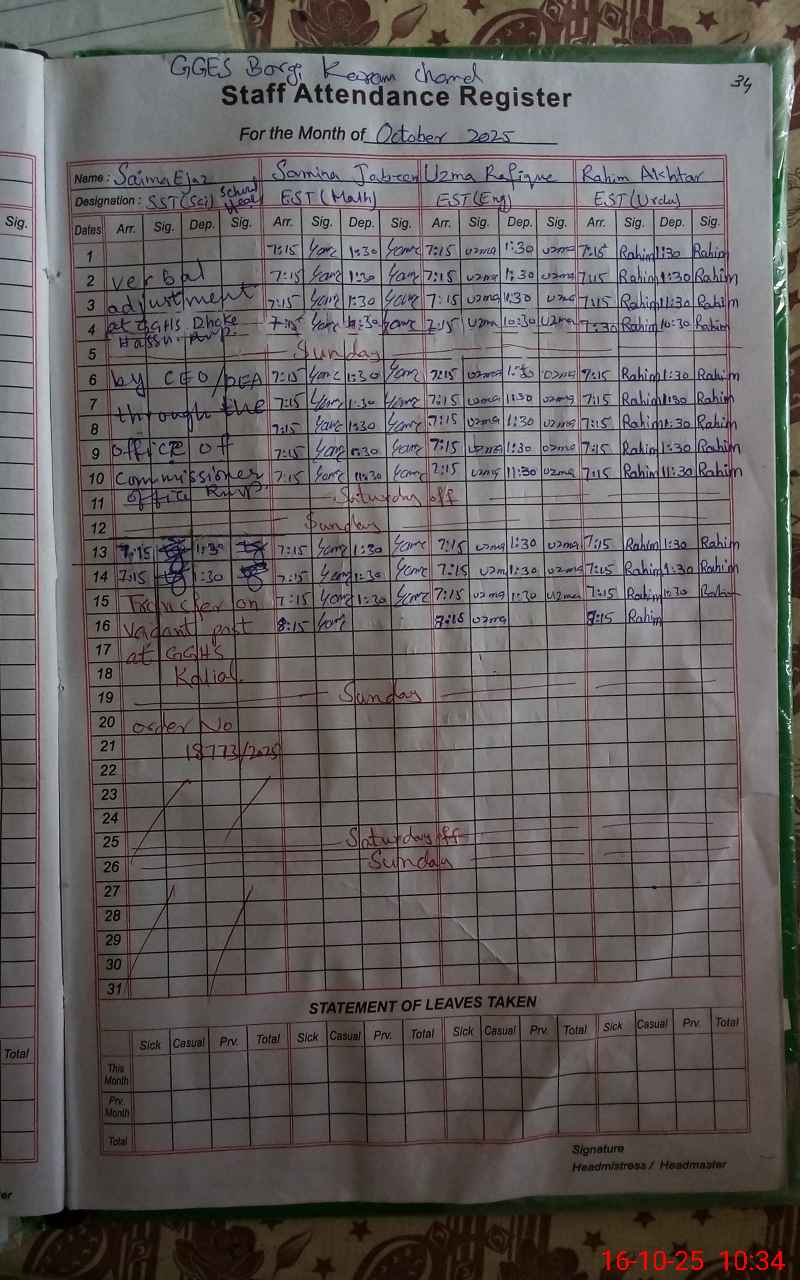 GGES Borgi Karam Chand
34
Staff Attendance Register
For the Month of October 2025
Name : Saima Ejaz Samina Jabeen Uzma Rafique Rahim Akhtar
Designation : SST(Sci) School Head EST(Math) EST(Eng) EST(Urdu)
Sig. Dates Arr. Sig. Dep. Sig. Arr. Sig. Dep. Sig. Arr. Sig. Dep. Sig. Arr. Sig. Dep. Sig.
1 7:15 1:30 7:15 uzma 1:30 uzma 7:15 Rahim 1:30 Rahim
2 verbal 7:15 1:30 7:15 uzma 1:30 uzma 7:15 Rahim 1:30 Rahim
3 adjustment 7:15 1:30 7:15 uzma 1:30 uzma 7:15 Rahim 11:30 Rahim
4 at GGHS Dhoke 7:15 10:30 7:15 uzma 10:30 uzma 7:30 Rahim 10:30 Rahim
Hassu Rwp.
5 Sunday
6 by CEO/DEA 7:15 1:30 7:15 uzma 1:30 uzma 7:15 Rahim 1:30 Rahim
7 through the 7:15 1:30 7:15 uzma 1:30 uzma 7:15 Rahim 1:30 Rahim
8 7:15 1:30 7:15 uzma 1:30 uzma 7:15 Rahim 1:30 Rahim
9 office of 7:15 1:30 7:15 uzma 1:30 uzma 7:15 Rahim 1:30 Rahim
10 Commissioner 7:15 11:30 7:15 uzma 11:30 uzma 7:15 Rahim 11:30 Rahim
office Rwp.
11 Saturday off
12 Sunday
13 7:15 1:30 7:15 1:30 7:15 uzma 1:30 uzma 7:15 Rahim 1:30 Rahim
14 7:15 1:30 7:15 1:30 7:15 uzma 1:30 uzma 7:15 Rahim 1:30 Rahim
15 Transfer on 7:15 1:30 7:15 uzma 1:30 uzma 7:15 Rahim 1:30 Rahim
16 Vacant post 8:15 8:15 uzma 8:15 Rahim
17 at GGHS
18 Kalial.
19 Sunday
20 order No
21 18773/2025
22
23
24
25 Saturday off
26 Sunday
27
28
29
30
31
STATEMENT OF LEAVES TAKEN
Sick Casual Prv. Total Sick Casual Prv. Total Sick Casual Prv. Total Sick Casual Prv. Total
Total This Month
Prv. Month
Total
Signature
Headmistress / Headmaster
16-10-25 10:34